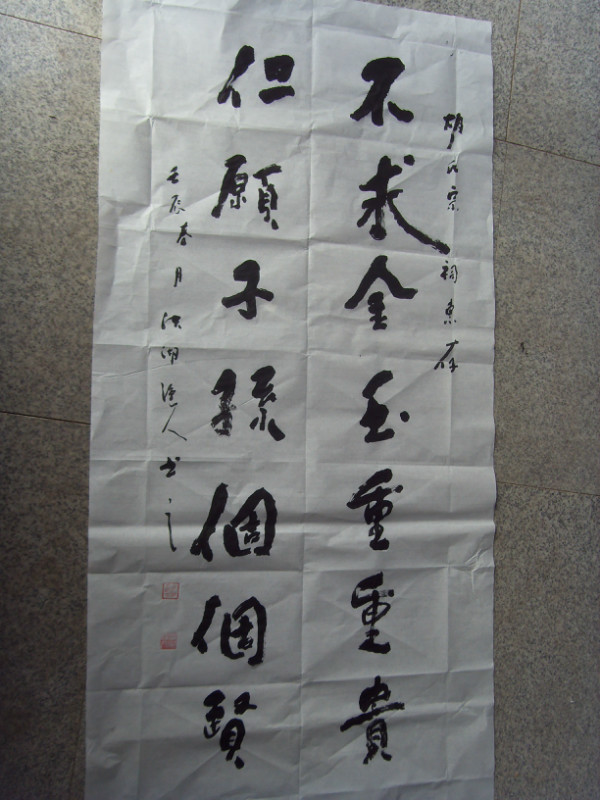 胡氏宗祠惠存
不求金玉重重貴
但願子孫個個賢
壬辰春月洪湖漁人书之